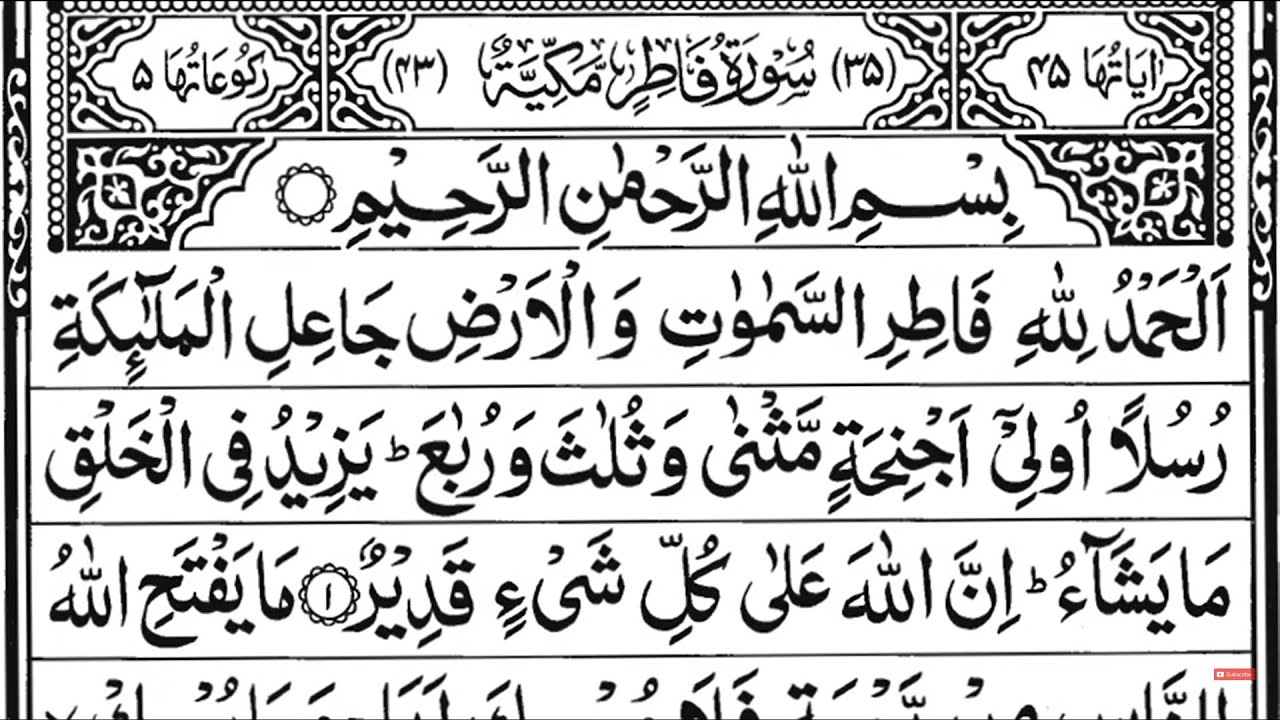 اٰيَاتُهَا ۴۵ (۳۵) سُوْرَةُ فَاطِرٍ مَّكِّيَّةٌ (۴۳) رُكُوْعَاتُهَا ۵
بِسْمِ اللّٰهِ الرَّحْمٰنِ الرَّحِيْمِ
اَلْحَمْدُ لِلّٰهِ فَاطِرِ السَّمٰوٰتِ وَ الْاَرْضِ جَاعِلِ الْمَلٰٓئِكَةِ
رُسُلًا اُولِيْۤ اَجْنِحَةٍ مَّثْنٰى وَ ثُلٰثَ وَ رُبٰعَ ؕ يَزِيْدُ فِى الْخَلْقِ
مَا يَشَآءُ ؕ اِنَّ اللّٰهَ عَلٰى كُلِّ شَىْءٍ قَدِيْرٌ ۱ مَا يَفْتَحِ اللّٰهُ
Subscribe